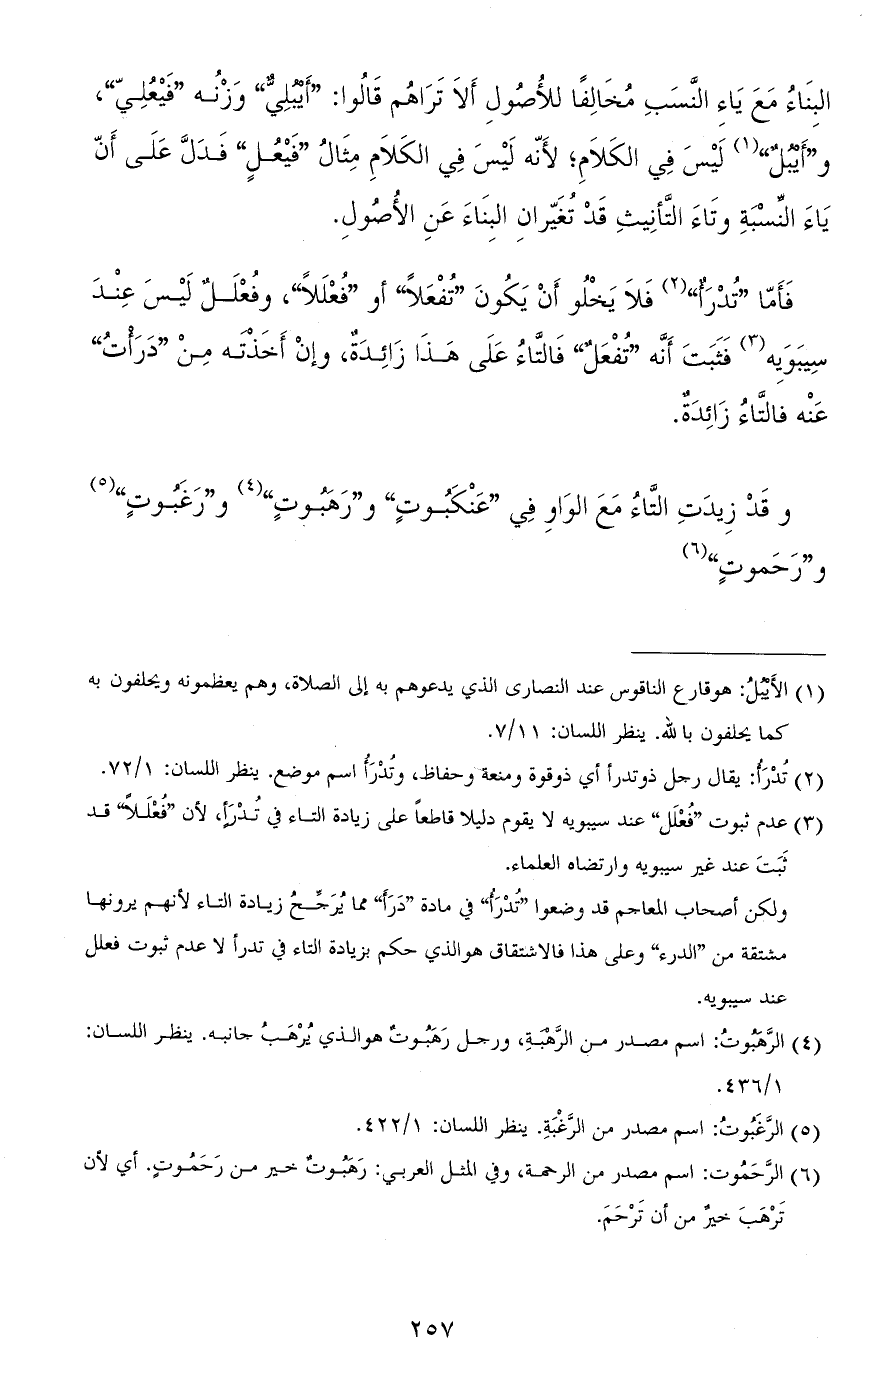 البِنَاءُ مَعَ يَاءِ النَّسَبِ مُخَالِفًا للأُصُولِ أَلاَ تَرَاهُم قَالُوا: ”أَيْبُلِيٌّ“ وَزْنُه ”فَيْعُلِيّ“،
و”أَيْبُلٌ“(١) لَيْسَ فِي الكَلاَمِ؛ لأَنّه لَيْسَ فِي الكَلاَمِ مِثَالُ ”فَيْعُلٍ“ فَدَلَّ عَلَى أَنّ
يَاءَ النِّسْبَةِ وتَاءَ التَّأنِيثِ قَدْ تُغَيّرانِ البِنَاءَ عَنِ الأُصُولِ.
فَأَمّا ”تُدْرَأُ“(٢) فَلاَ يَخْلُو أَنْ يَكُونَ ”تُفْعَلاً“ أو ”فُعْلَلاً“، وفُعْلَلٌ لَيْسَ عِنْدَ
سِيبَوَيه(٣) فَثَبَتَ أَنَّه ”تُفْعَلٌ“ فَالتَّاءُ عَلَى هَذَا زَائِدَةٌ، وإنْ أَخَذْتَه مِنْ ”دَرَأْتُ“
عَنْه فالتَّاءُ زَائِدَةٌ.
و قَدْ زِيدَتِ التَّاءُ مَعَ الوَاوِ فِي ”عَنْكَبُوتٍ“ و”رَهَبُوتٍ“(٤) و”رَغَبُوتٍ“(٥)
و”رَحَموتٍ“(٦)
(١) الأَيْبُلُ: هوقارع الناقوس عند النصارى الذي يدعوهم به إلى الصلاة، وهم يعظمونه ويحلفون به
كما يحلفون با لله. ينظر اللسان: ٧/١١.
(٢) تُدْرَأُ: يقال رجل ذوتدرأ أي ذوقوة ومنعة وحفاظ، وتُدْرَأُ اسم موضع. ينظر اللسان: ٧٢/١.
(٣) عدم ثبوت ”فُعْلَل“ عند سيبويه لا يقوم دليلا قاطعاً على زيادة التاء في تُدْرَأٍ، لأن ”فُعْلَلاً“ قد
ثَبَتَ عند غير سيبويه وارتضاه العلماء.
ولكن أصحاب المعاجم قد وضعوا ”تُدْرَأُ“ في مادة ”دَرَأَ“ مما يُرَجِّحُ زيادة التاء لأنهم يرونها
مشتقة من ”الدرء“ وعلى هذا فالاشتقاق هوالذي حكم بزيادة التاء في تدرأ لا عدم ثبوت فعلل
عند سيبويه.
(٤) الرَّهَبُوتُ: اسم مصدر من الرَّهْبَةِ، ورجل رَهَبُوتٌ هوالذي يُرْهَبُ جانبه. ينظر اللسان:
٤٣٦/١.
(٥) الرَّغَبُوتُ: اسم مصدر من الرَّغْبَةِ. ينظر اللسان: ٤٢٢/١.
(٦) الرَّحَمُوت: اسم مصدر من الرحمة، وفي المثل العربي: رَهَبُوتٌ خير من رَحَمُوتٍ. أي لأن
تَرْهَبَ خيرٌ من أن تَرْحَمَ.
٢٥٧